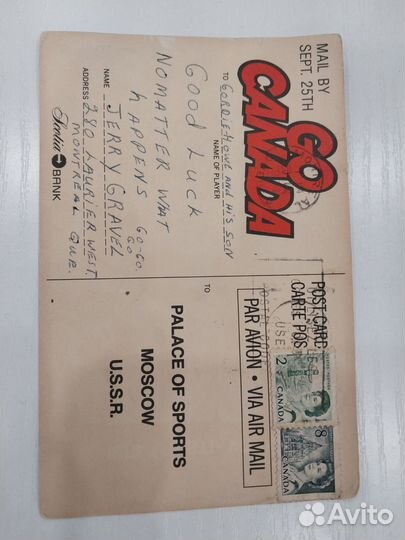 MAIL BY
SEPT. 25TH
GO
CANADA
TO GORDIE HOWE AND HIS SON
NAME OF PLAYER
GOOD LUCK
NO MATTER WHAT
HAPPENS GO-GO
GO
NAME JERRY GRAVEL
ADDRESS 280 LAURIER WEST.
MONTREAL QUE.
Scotia BANK
POST CARD
CARTE POS
USE
PAR AVION • VIA AIR MAIL
TO
PALACE OF SPORTS
MOSCOW
U.S.S.R.
2
CANADA
8
CANADA
Avito